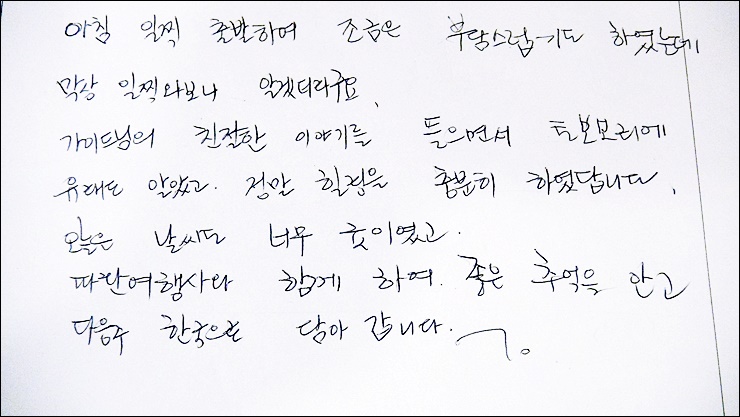 아침 일찍 출발하여 조금은 부담스럽기도 하였는데
막상 일찍와보니 알겠더라구요.
가이드님의 친절한 이야기를 들으면서 토보모리에
유래도 알았고. 정말 힐링을 충분히 하였답니다.
오늘은 날씨도 너무 굿이였고.
따란여행사와 함께 하여 좋은 추억을 안고
다음주 한국으로 담아 갑니다.